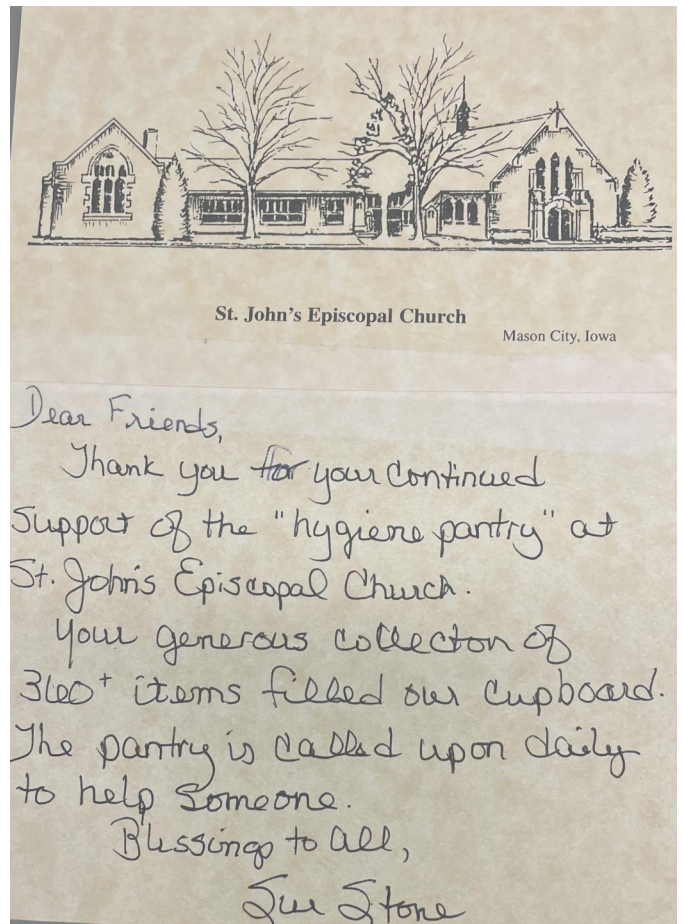 St. John's Episcopal Church
Mason City, Iowa
Dear Friends,
Thank you for your continued
support of the "hygiene pantry" at
St. John's Episcopal Church.
Your generous collecton of
360+ items filled our cupboard.
The pantry is called upon daily
to help someone.
Blessings to all,
Sue Stone